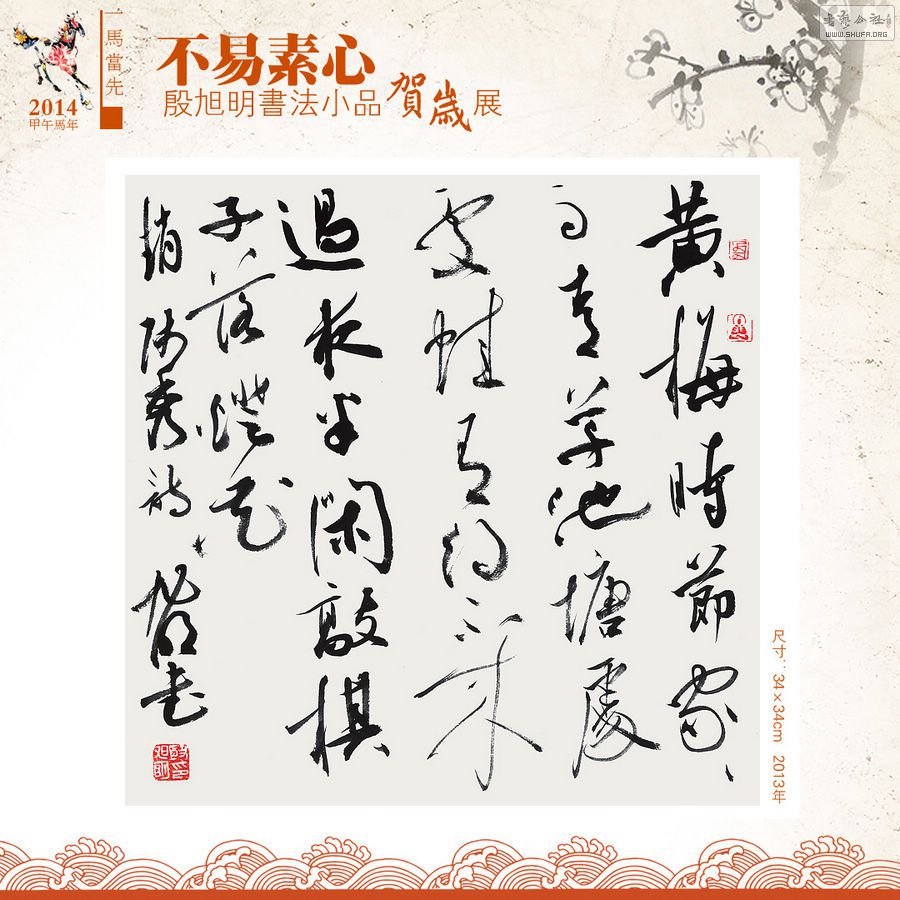 2014
甲午馬年
一馬當先
不易素心
殷旭明書法小品賀歲展
WWW.SHUFA.ORG
黄梅時節家、
雨青草池塘處
處蛙有約不来
過夜半閑敲棋
子落燈花
趙师秀詩、旭明書
尺寸：34×34cm 2013年